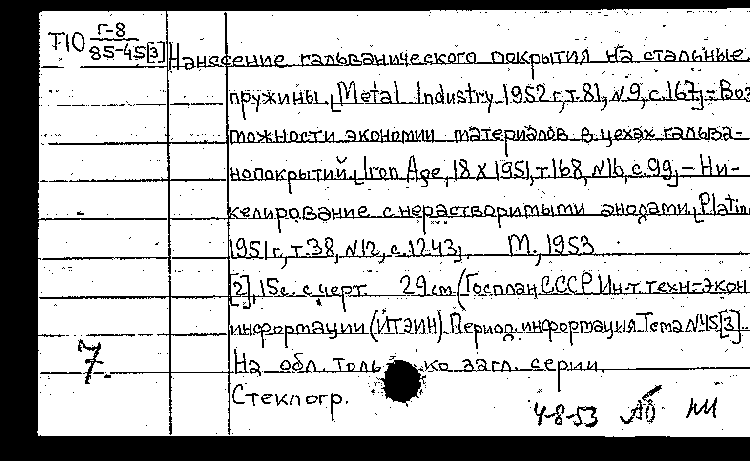 Т10 Г-8
85-45[3] Нанесение гальванического покрытия на стальные
пружины. [Metal Industry 1952 г, т.81, №9, с.167] – Воз
можности экономии материалов в цехах гальва-
нопокрытий. [Iron Age, 18 X 1951, т.168, №16, с.99] – Ни-
келирование с нерастворимыми анодами. [Platin
1951 г, т.38, №12, с.1243]. М., 1953
[2], 15с. с черт. 29 см (Госплан СССР Ин-т техн-экон
информации (ИТЭИН). Период. информация. Тема №45[3]
7. На обл. толь ко загл. серии.
Стеклогр.
4-8-53